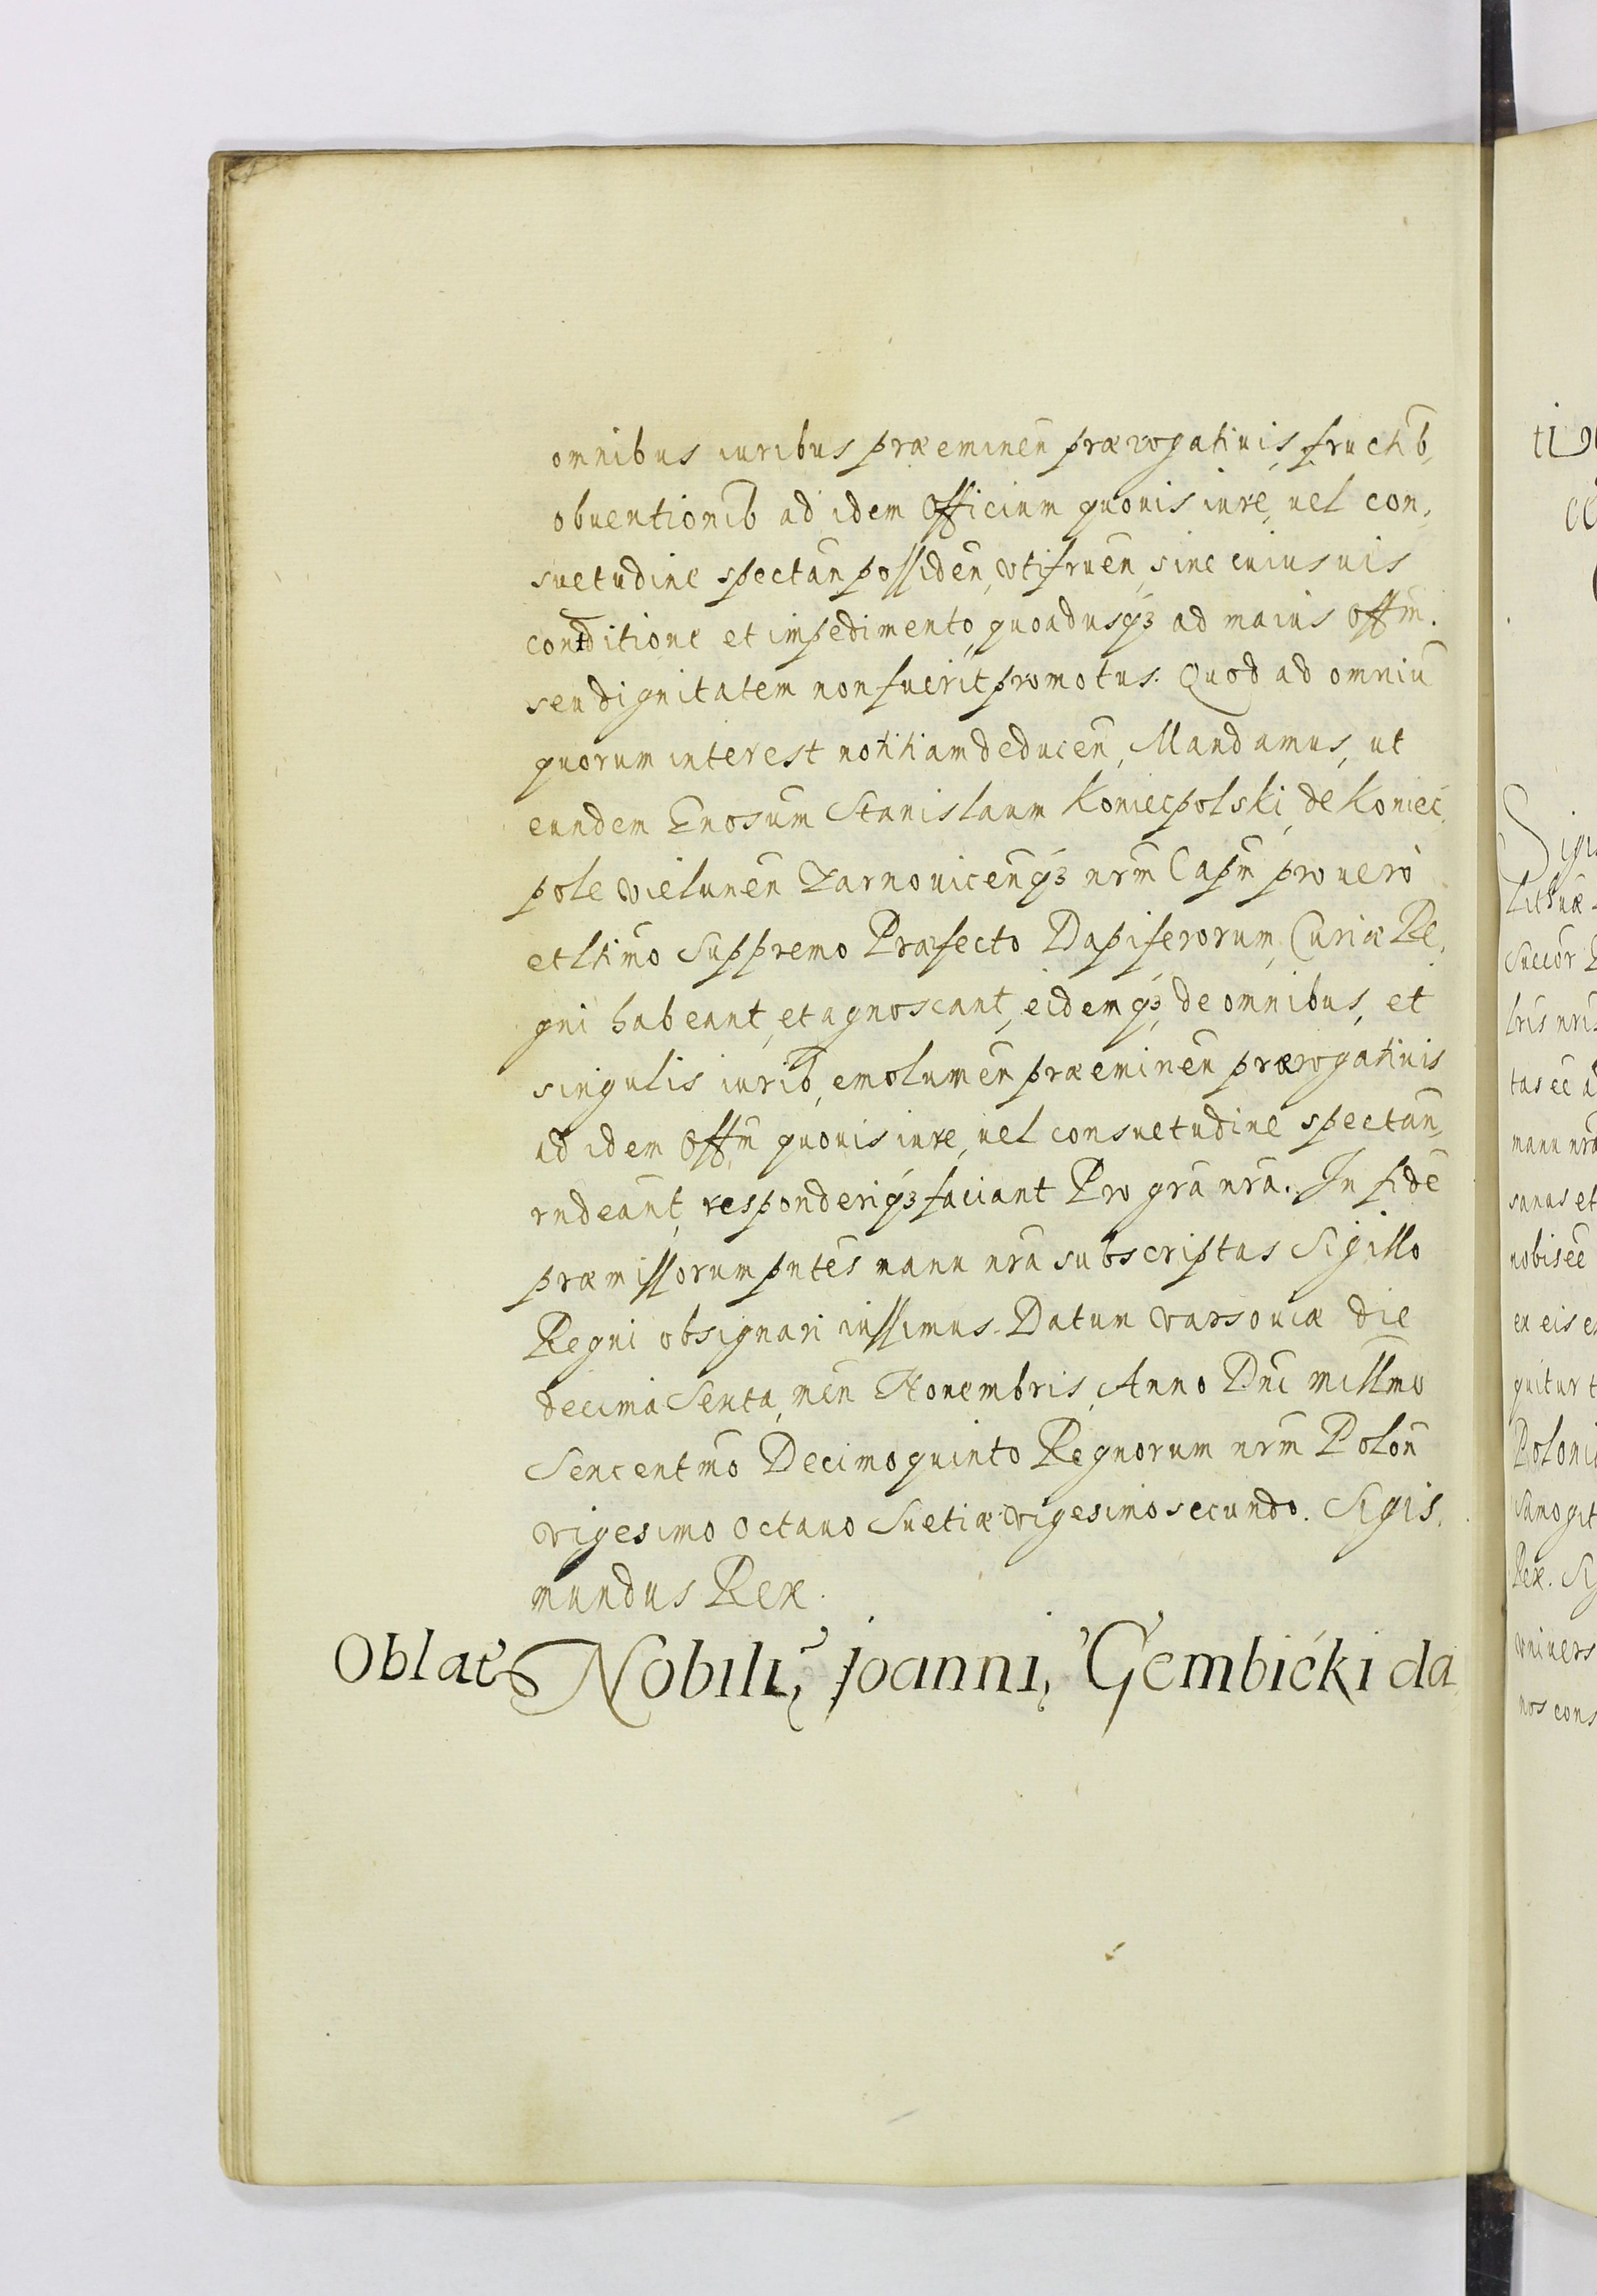 omnibus iuribus præeminen̄ prærogatiuis, fructib̄,
obuentionib̄ ad idem Officium quouis iure, uel con,
suetudine spectan̄ possiden̄, vtifruen̄, sine cuiusuis
contditione et impedimento, quoadusqꝫ ad maius Offm̄.
seu dignitatem non fuerit promotus. Quod ad omniū
quorum interest notitiam deducen̄, Mandamus, ut
eundem Gnosūm Stanislaum Koniecpolski, de Koniec,
pole Vielunen̄ Zarnouicen̄qꝫ nrm̄ Capn̄ pro uero
et ltimō Suppremo Præfecto Dapiferorum, Curiæ Re,
gni habeant, et agnoscant, eidemqꝫ, de omnibus, et
singulis iurib̄, emolumen̄ præeminen̄ prærogatiuis
ad idem Offm̄ quouis iure, uel consuetudine spectan̄,
rndeānt, responderiqꝫ faciant Pro grā nrā. In fidē
præmissorum pntēs manu nrā subscriptas Sigillo
Regni obsignari iussimus. Datum Varsouiæ die
decima Sexta, men̄ Nouembris, Anno Dnī millmō
Sexcentmō Decimoquinto Regnorum nrm̄ Polon̄
vigesimo octauo Suetiæ vigesimo secundo. Sigis,
mundus Rex.
Oblat Nobili, Joanni, Gembićki da